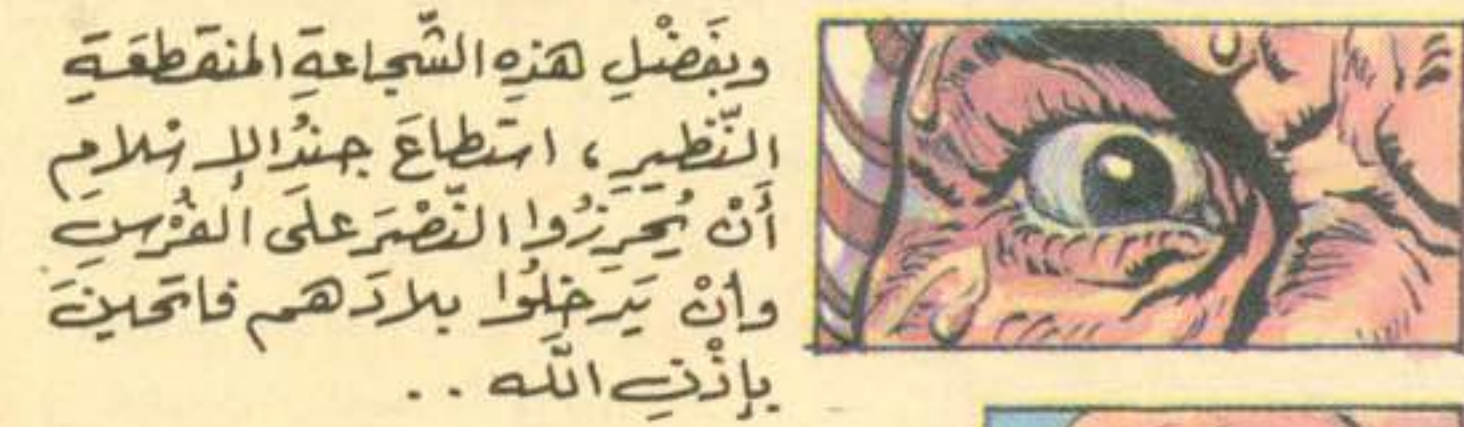 وبفَضْلِ هذهِ الشّجاعةِ المنقطعَةِ
النّظيرِ، استطاعَ جندُ الإسْلامِ
أَنْ يُحرِزُوا النّصْرَ على الفُرْسِ
وانْ يَدخلُوا بلادَهم فاتحينَ
بإذْنِ اللّه . .